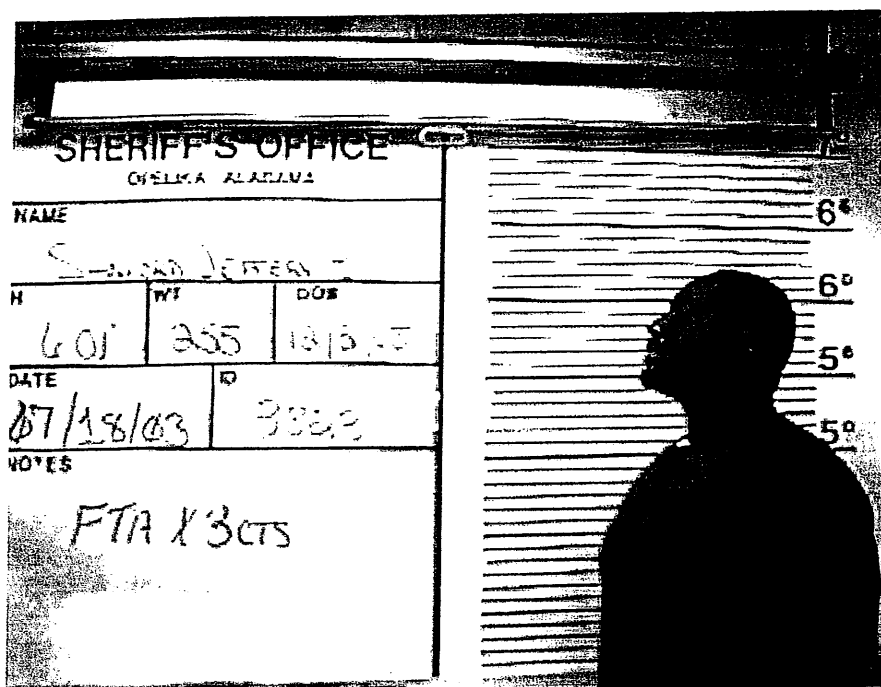 SHERIFF'S OFFICE
OPELIKA ALABAMA
NAME
H WT DOB
601 255
DATE ID
07/18/03
NOTES
FTA X 3 CTS
6⁶
6⁰
5⁶
5⁰